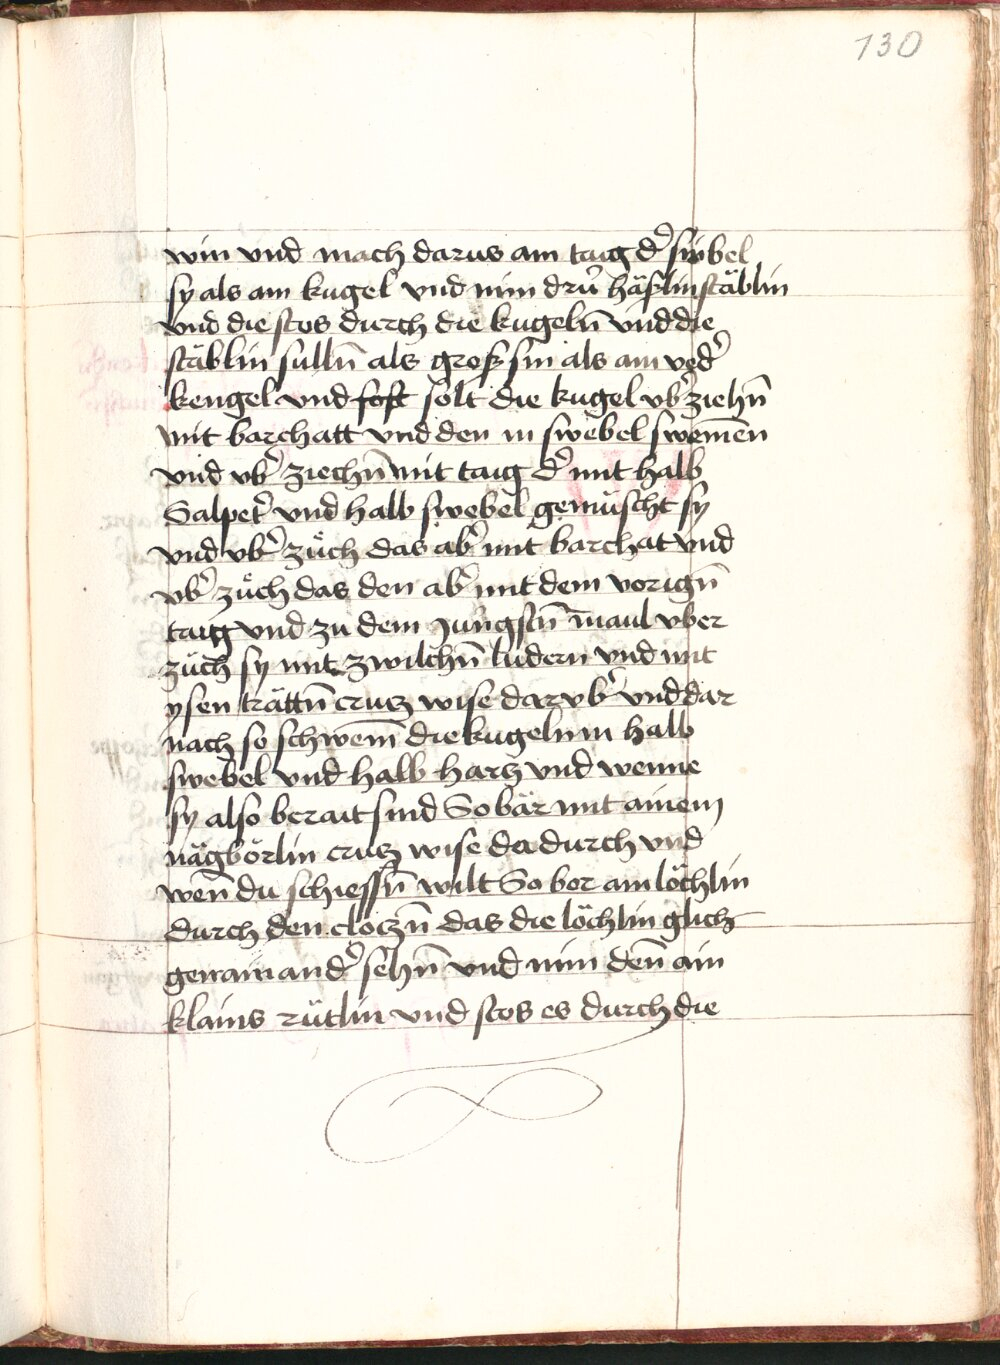 130
win vnd mach darus ain taig d̉ sinbel
sy als ain kugel vnd nim drü häslin stäblin
vnd die stos durch die kugeln̄ vnd die
stäblin sulln̄ als groß sin als ain ved̉
kengel vnd solt die kugel vb̉ ziehn̄
mit barchatt vnd den in swebel swem̄en
vnd vb̉ ziechn̄ mit taig d̉ mit halb
Salpet̉ vnd halb swebel gemüscht sy
vnd vb̉ züch das ab̉ mit barchat vnd
vb̉ züch das den ab̉ mit dem vorign̄
taig vnd zu dem jungstn̄ maul vber
züch sy mit zwilchn̄ ludern vnd mit
ysen trättn̄ crucz wise dar vb̉ vnd dar
nach so schwem̄ die kugeln in halb
swebel vnd halb hartz vnd wenne
sy also berait sind So bär mit ainem
nägbörlin crucz wise da durch vnd
wen̄ du schiessn̄ wilt So bor ain löchlin
durch den cloczn̄ das die löchlin glich
gen ain and̉ sehn̄ vnd nim den̄ ain
klains rütlin vnd stos es durch die